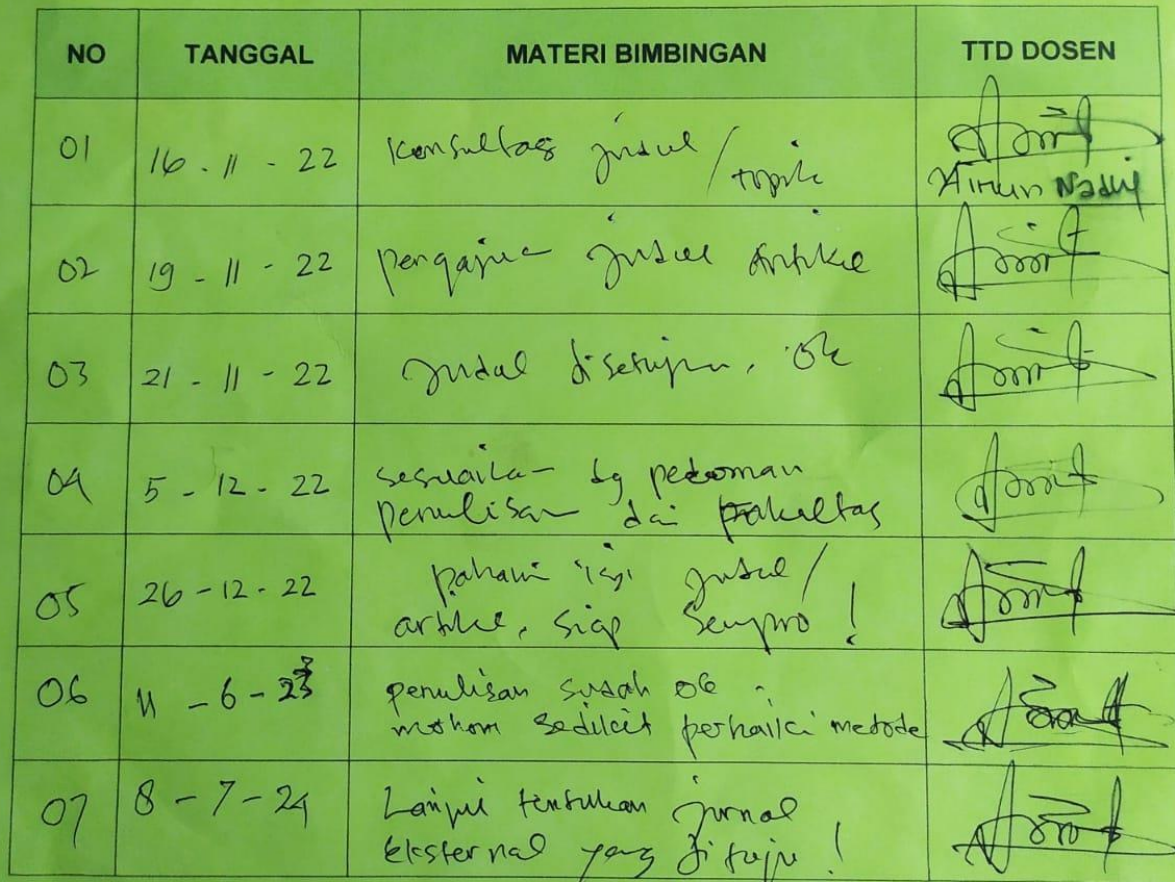 NO TANGGAL MATERI BIMBINGAN TTD DOSEN
01 16 - 11 - 22 Konsultasi judul / topik
Ainun Nadlif
02 19 - 11 - 22 pengajuan judul Artikel
03 21 - 11 - 22 Judul disetujui, Ok
04 5 - 12 - 22 sesuaikan dg pedoman
penulisan dari fakultas
05 26 - 12 - 22 pahami isi judul /
artikel, siap Sempro !
06 11 - 6 - 23 penulisan sudah ok
mohon sedikit perbaiki metode
07 8 - 7 - 24 Lanjut tentukan jurnal
eksternal yang dituju !